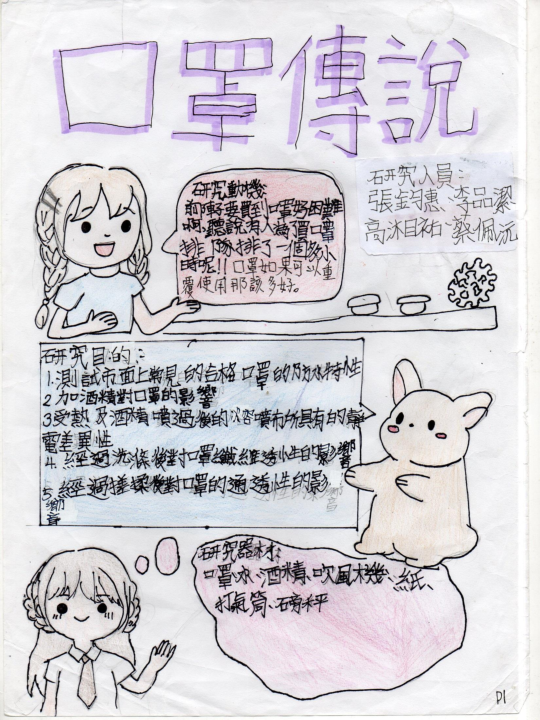 口罩傳說
研究人員:
張鈞惠、李品潔
高沐祐、蔡佩沅
研究動機:
前陣子要買到口罩好困難
啊,聽說有人為了買口罩
排隊排了一個多小
時呢!!口罩如果可以重
覆使用那該多好。
研究目的:
1.測試市面上常見的合格口罩的防水特性
2.加酒精對口罩的影響
3.受熱及酒精噴過後的溶噴布所具有的靜
電差異性
4.經過洗滌後對口罩纖維透水性的影響
5.經過搓揉後對口罩的通透性的影
響
研究器材:
口罩、水、酒精、吹風機、紙、
打氣筒、磅秤
P1